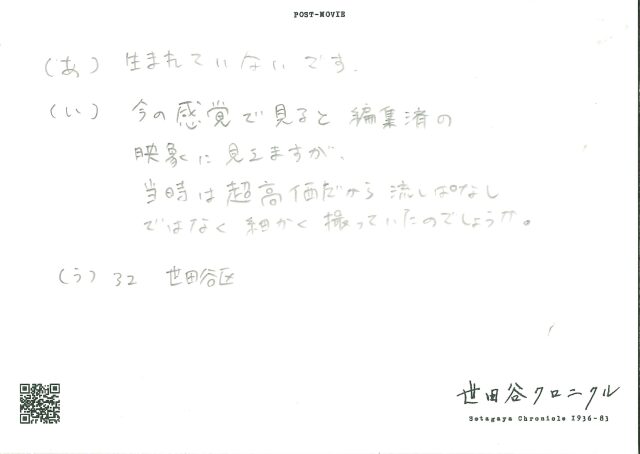 POST-MOVIE
(あ) 生まれていないです.
(い) 今の感覚で見ると 編集済の
映象に見えますが、
当時は超高価だから 流しぱなし
ではなく 細かく 撮っていたのでしょうか。
(う) 32 世田谷区
世田谷クロニクル
Setagaya Chronicle 1936-83